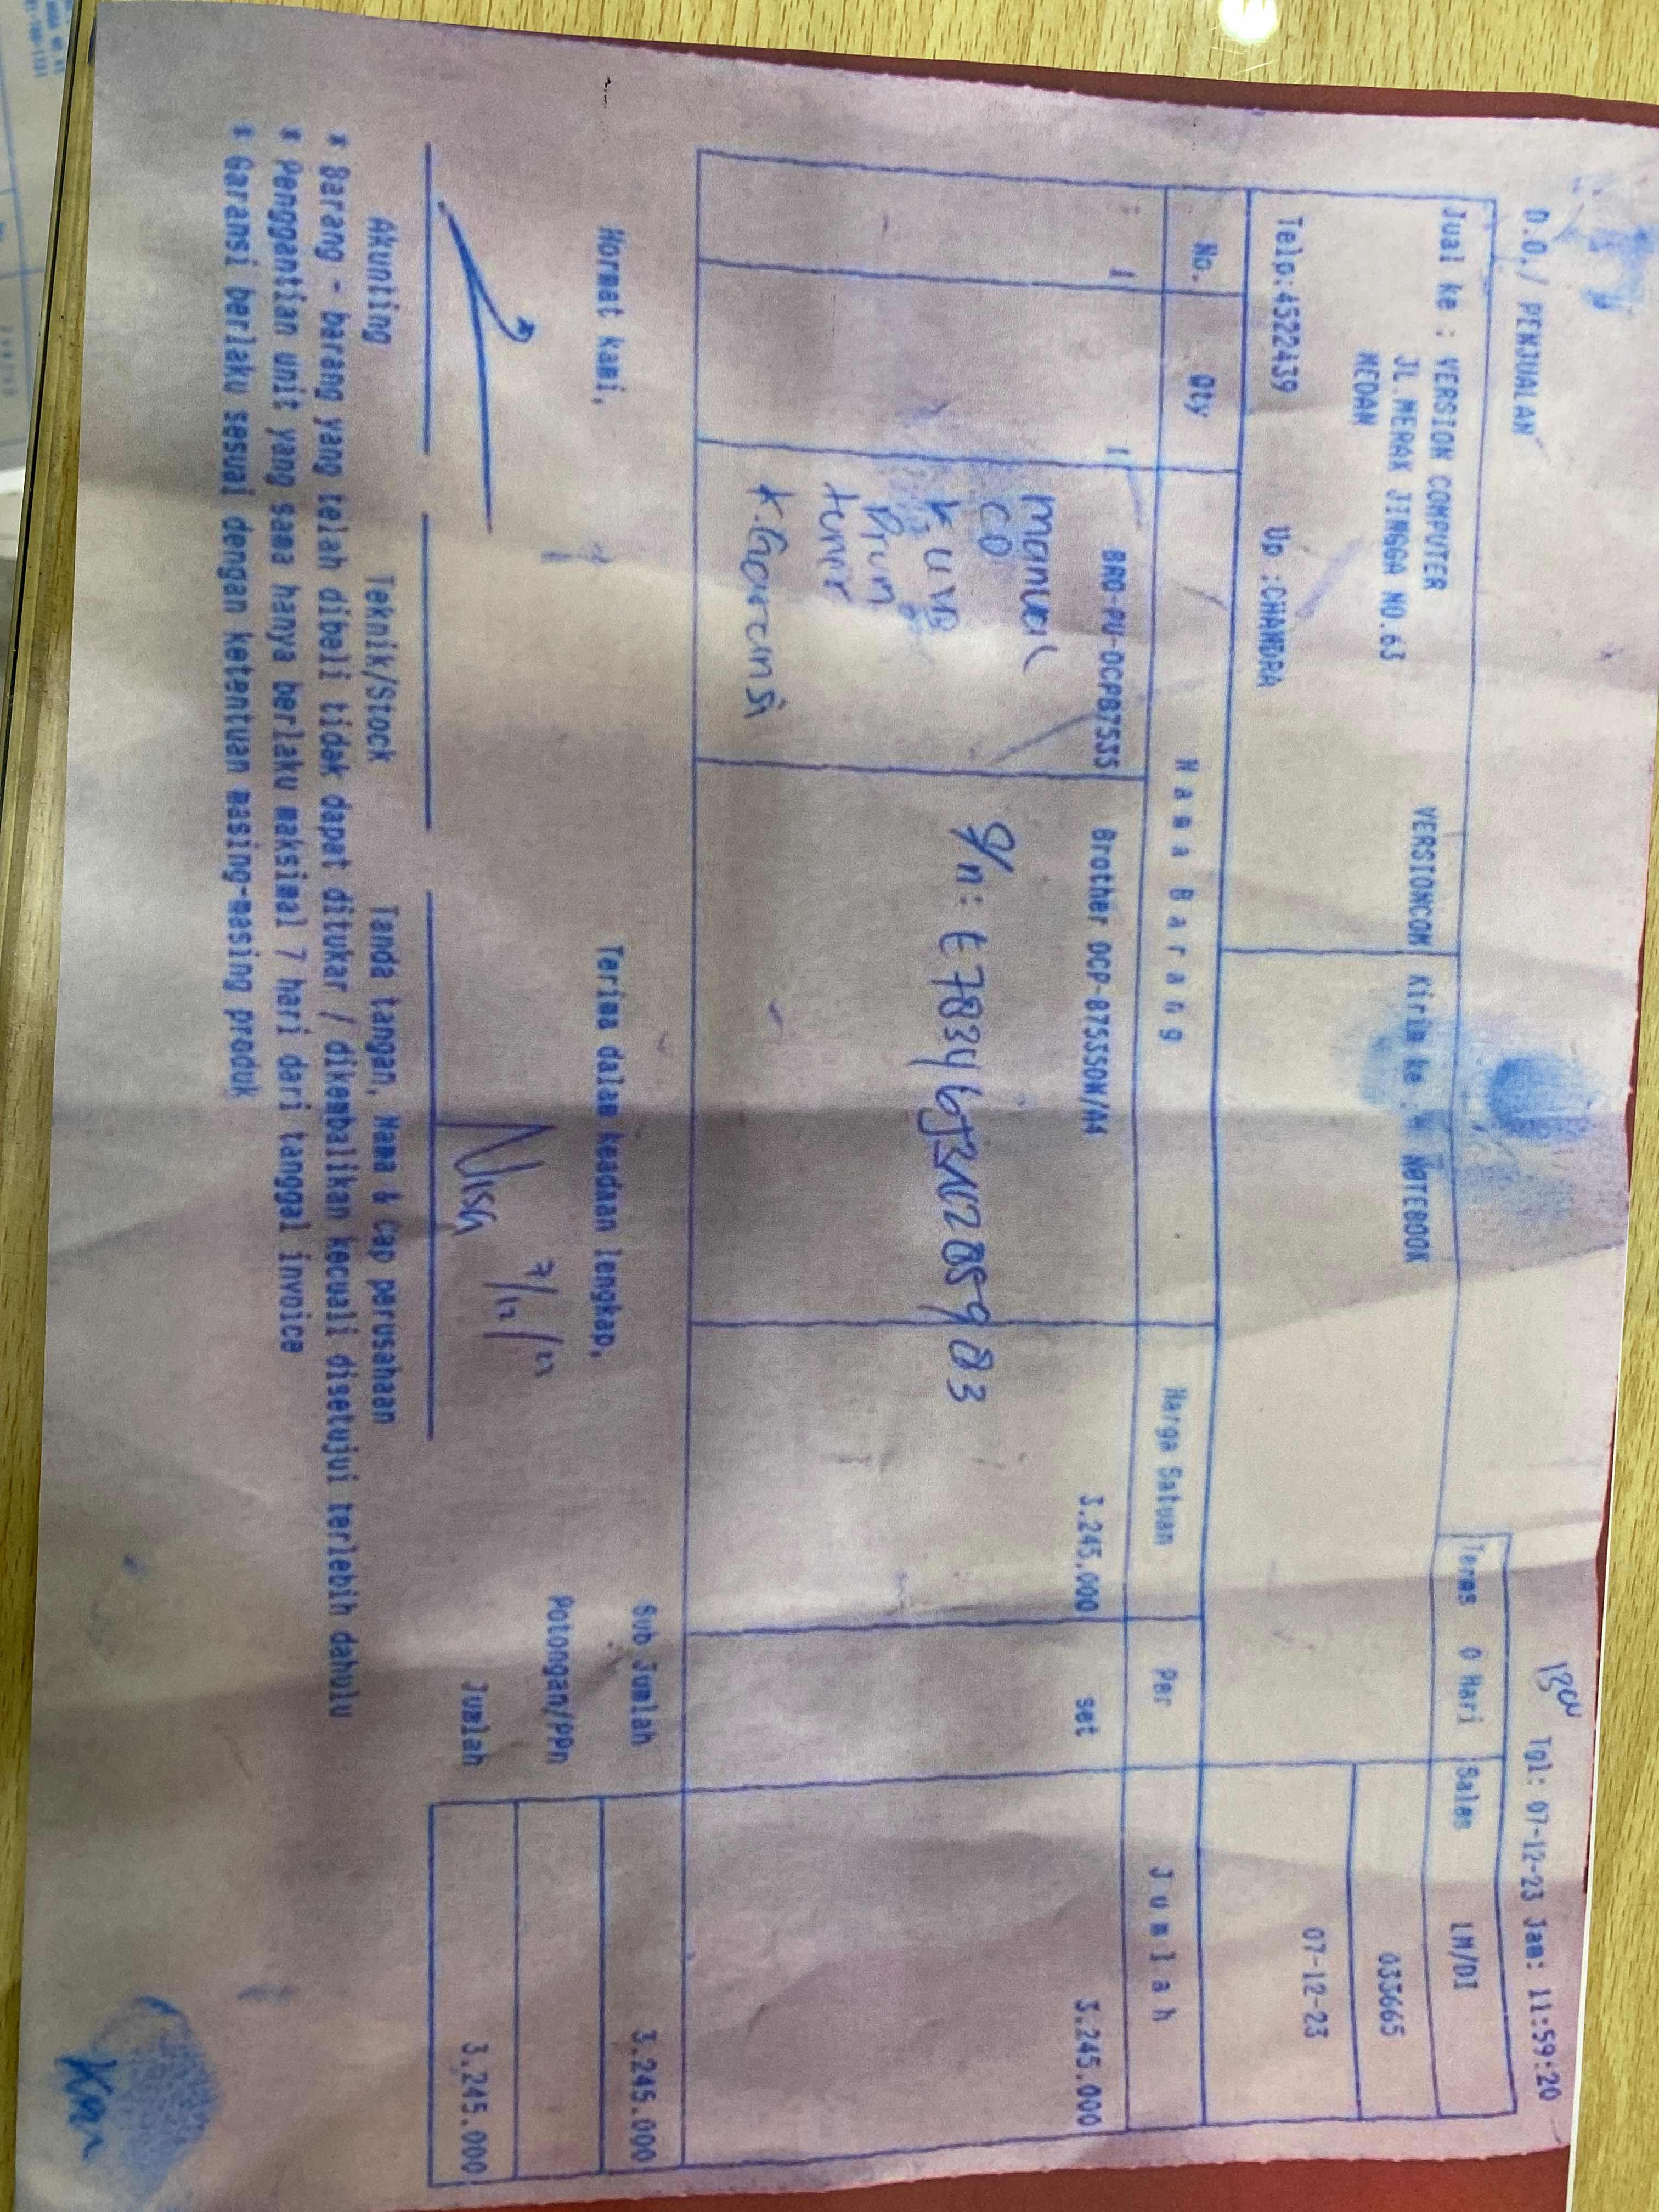 Tgl: 07-12-23 Jam: 11:59:20
D.O./ PENJUALAN
Terms 0 Hari Sales LM/DI
Jual ke : VERSION COMPUTER VERSIONCOM Kirim ke NOTEBOOK
JL.MERAK JINGGA NO.63 033665
MEDAN
07-12-23
Telp:4522439 Up :CHANDRA
No. Qty Nama Barang Harga Satuan Per Jumlah
1 1 BRO-PU-DCPB7535 Brother DCP-B7535DW/A4 3.245.000 set 3.245.000
manual
CD
Drum
toner
K.Garansi
Hormat kami, Terima dalam keadaan lengkap, Sub Jumlah 3.245.000
Potongan/PPn
Nisa 7/12/23
Jumlah 3.245.000
Akunting Teknik/Stock Tanda tangan, Nama & Cap perusahaan
* Barang - barang yang telah dibeli tidak dapat ditukar / dikembalikan kecuali disetujui terlebih dahulu
* Penggantian unit yang sama hanya berlaku maksimal 7 hari dari tanggal invoice
* Garansi berlaku sesuai dengan ketentuan masing-masing produk